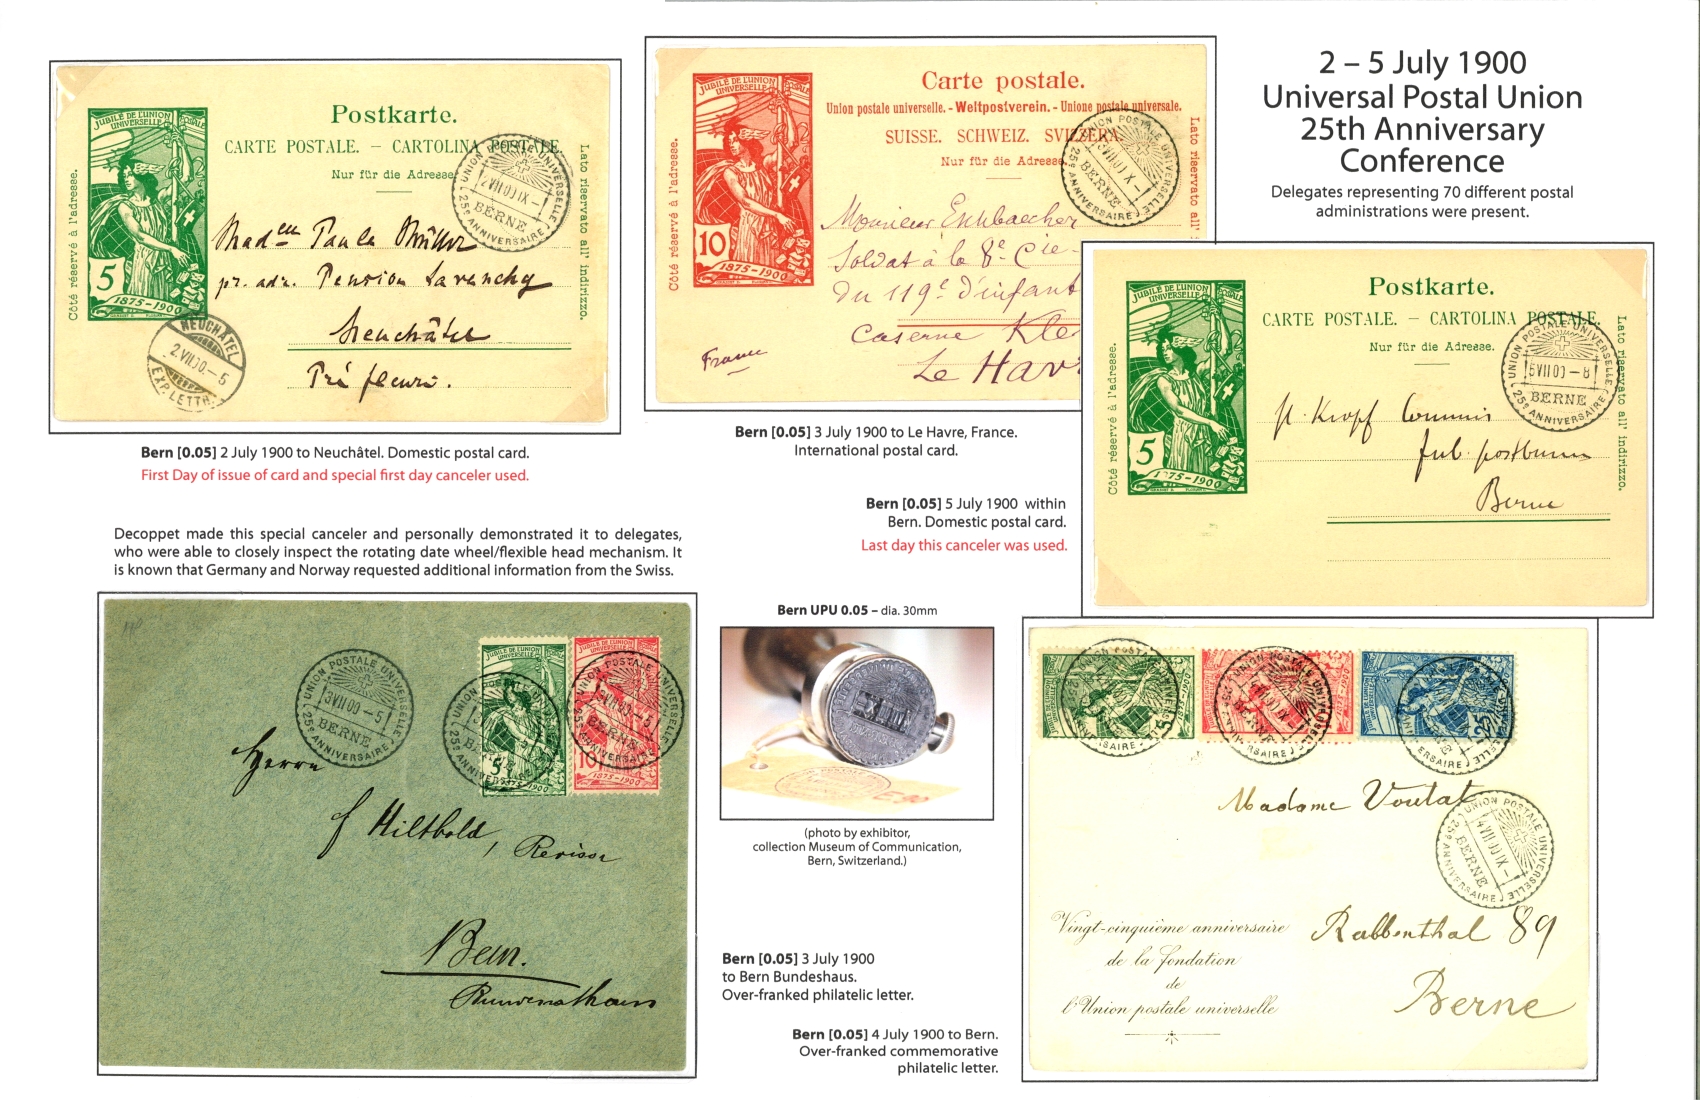 2 – 5 July 1900
Universal Postal Union
25th Anniversary
Conference
Delegates representing 70 different postal
administrations were present.
JUBILÉ DE L'UNION
POSTALE
UNIVERSELLE
5
1875-1900
Postkarte.
CARTE POSTALE. – CARTOLINA POSTALE.
Nur für die Adresse.
Côté réservé à l'adresse.
Lato riservato all' indirizzo.
UNION POSTALE UNIVERSELLE
2 VII 00 IX –
BERNE
25e ANNIVERSAIRE
Paula Müller
pr. adr. Pension
Neuchâtel
Pré fleuri.
NEUCHÂTEL
2.VII.00.–5
EXP. LETTR.
Bern [0.05] 2 July 1900 to Neuchâtel. Domestic postal card.
First Day of issue of card and special first day canceler used.
JUBILÉ DE L'UNION
POSTALE
UNIVERSELLE
10
1875-1900
Carte postale.
Union postale universelle. - Weltpostverein. - Unione postale universale.
SUISSE. SCHWEIZ. SVIZZERA.
Nur für die Adresse
Côté réservé à l'adresse.
Lato riservato all'
UNION POSTALE UNIVERSELLE
3 VII 00 IX –
BERNE
25e ANNIVERSAIRE
Monsieur
Soldat à la 8e Cie
du 119e d'infant
Caserne Kle
Le Hav
France
Bern [0.05] 3 July 1900 to Le Havre, France.
International postal card.
JUBILÉ DE L'UNION
POSTALE
UNIVERSELLE
5
1875-1900
Postkarte.
CARTE POSTALE. – CARTOLINA POSTALE.
Nur für die Adresse.
Côté réservé à l'adresse.
Lato riservato all' indirizzo.
UNION POSTALE UNIVERSELLE
5 VII 00 – 8
BERNE
25e ANNIVERSAIRE
Kropf
Berne
Bern [0.05] 5 July 1900 within
Bern. Domestic postal card.
Last day this canceler was used.
Decoppet made this special canceler and personally demonstrated it to delegates,
who were able to closely inspect the rotating date wheel/flexible head mechanism. It
is known that Germany and Norway requested additional information from the Swiss.
UNION POSTALE UNIVERSELLE
3 VII 00 – 5
BERNE
25e ANNIVERSAIRE
JUBILÉ DE L'UNION
UNIVERSELLE
5
1875-1900
JUBILÉ DE L'UNION
UNIVERSELLE
10
1875-1900
Herrn
Hiltbold,
Bern.
Bern UPU 0.05 – dia. 30mm
(photo by exhibitor,
collection Museum of Communication,
Bern, Switzerland.)
Bern [0.05] 3 July 1900
to Bern Bundeshaus.
Over-franked philatelic letter.
Bern [0.05] 4 July 1900 to Bern.
Over-franked commemorative
philatelic letter.
5
25
UNION POSTALE UNIVERSELLE
4 VII 00 IX –
BERNE
25e ANNIVERSAIRE
Madame Voutat
Rabbenthal 89
Berne
Vingt-cinquième anniversaire
de la fondation
de
l'Union postale universelle